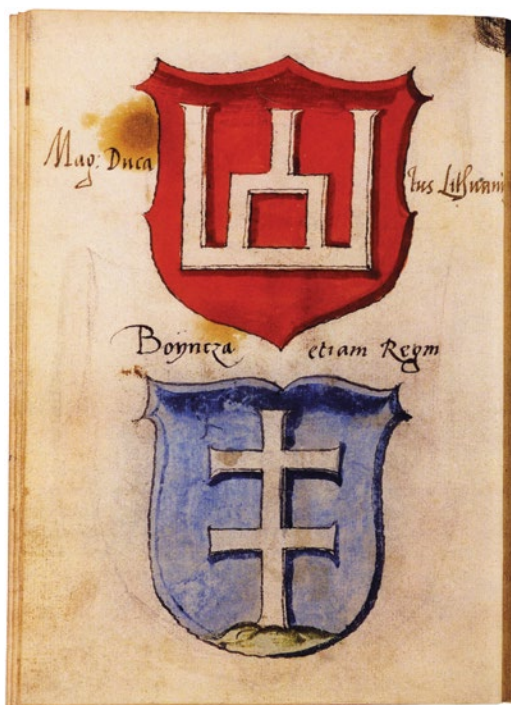 Mag: Duca tus Lithuani
Boyncza etiam Regni